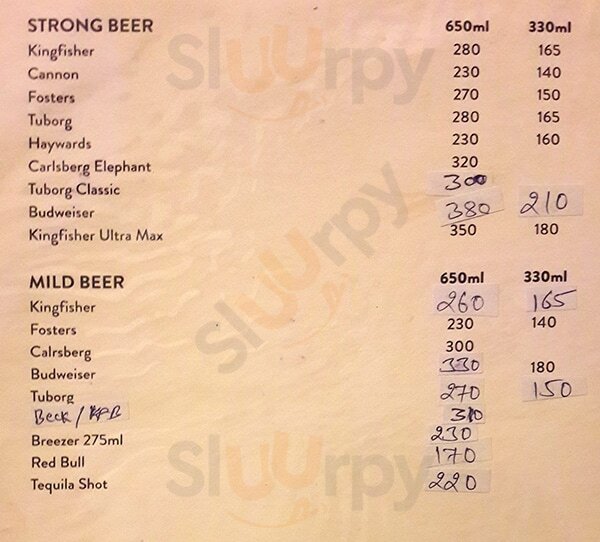 STRONG BEER 650ml 330ml
Kingfisher 280 165
Cannon 230 140
Fosters 270 150
Tuborg 280 165
Haywards 230 160
Carlsberg Elephant 320
Tuborg Classic 300
Budweiser 380 210
Kingfisher Ultra Max 350 180
MILD BEER 650ml 330ml
Kingfisher 260 165
Fosters 230 140
Calrsberg 300
Budweiser 330 180
Tuborg 270 150
Beck / 310
Breezer 275ml 230
Red Bull 170
Tequila Shot 220
Sluurpy
Sluurpy
Sluurpy